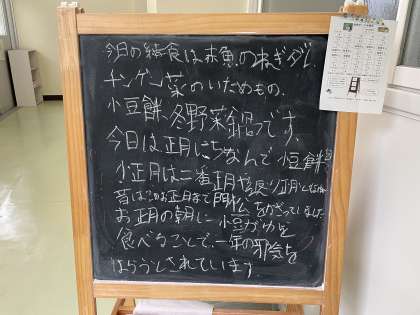 今日の給食は赤魚のねぎダレ、
チンゲン菜のいためもの、
小豆餅、冬野菜鍋です。
今日は正月にちなんで小豆餅
小正月は二番正月や返り正月とも
昔はこのお正月まで門松をかざっていました
お正月の朝に小豆がゆを
食べることで、一年の邪気を
はらうとされています。